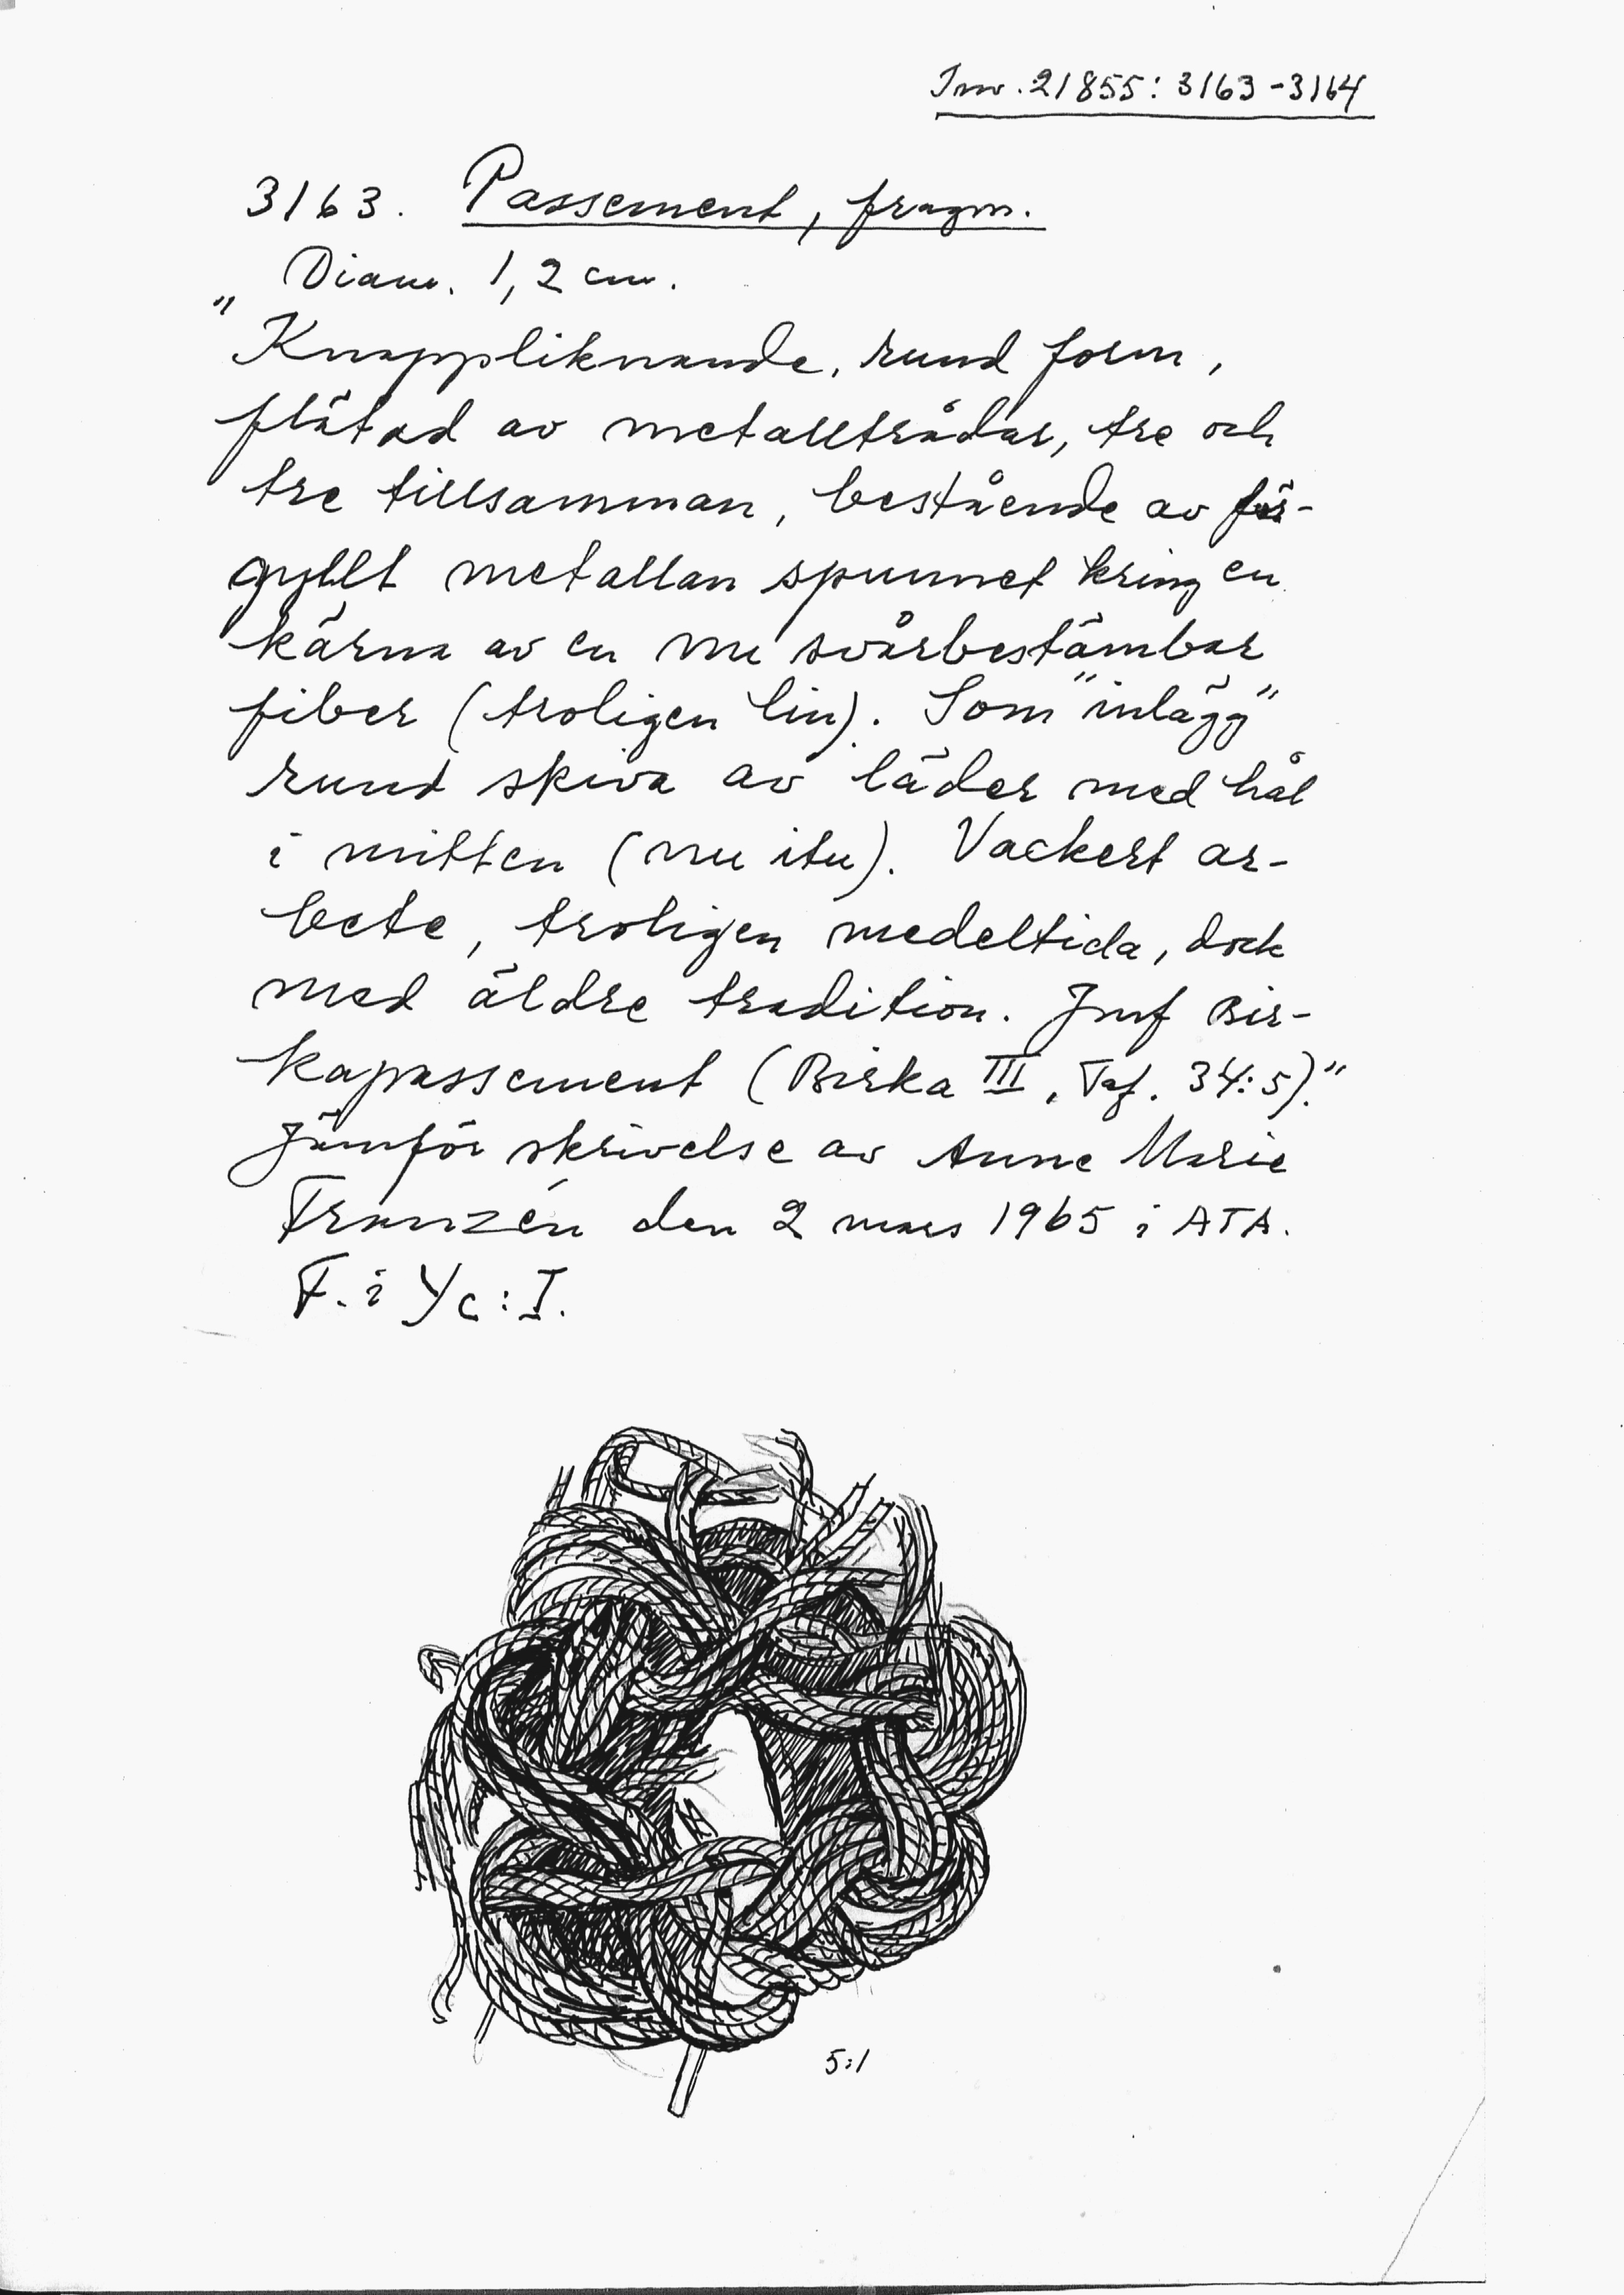 Inv. 21855: 3163-3164
3163. Passement, fragm.
Diam. 1,2 cm.
"Knappliknande, rund form,
flätad av metalltrådar, tre och
tre tillsamman, bestående av för-
gyllt metallan spunnet kring en
kärna av en nu svårbestämbar
fiber (troligen lin). Som "inlägg"
rund skiva av läder med hål
i mitten (nu itu). Vackert ar-
bete, troligen medeltida, dock
med äldre tradition. Jmf Bir-
kapassement (Birka III, Taf. 34:5)."
Jämför skrivelse av Anne Marie
Franzén den 2 mars 1965 i ATA.
F. i Yc: I.
5:1